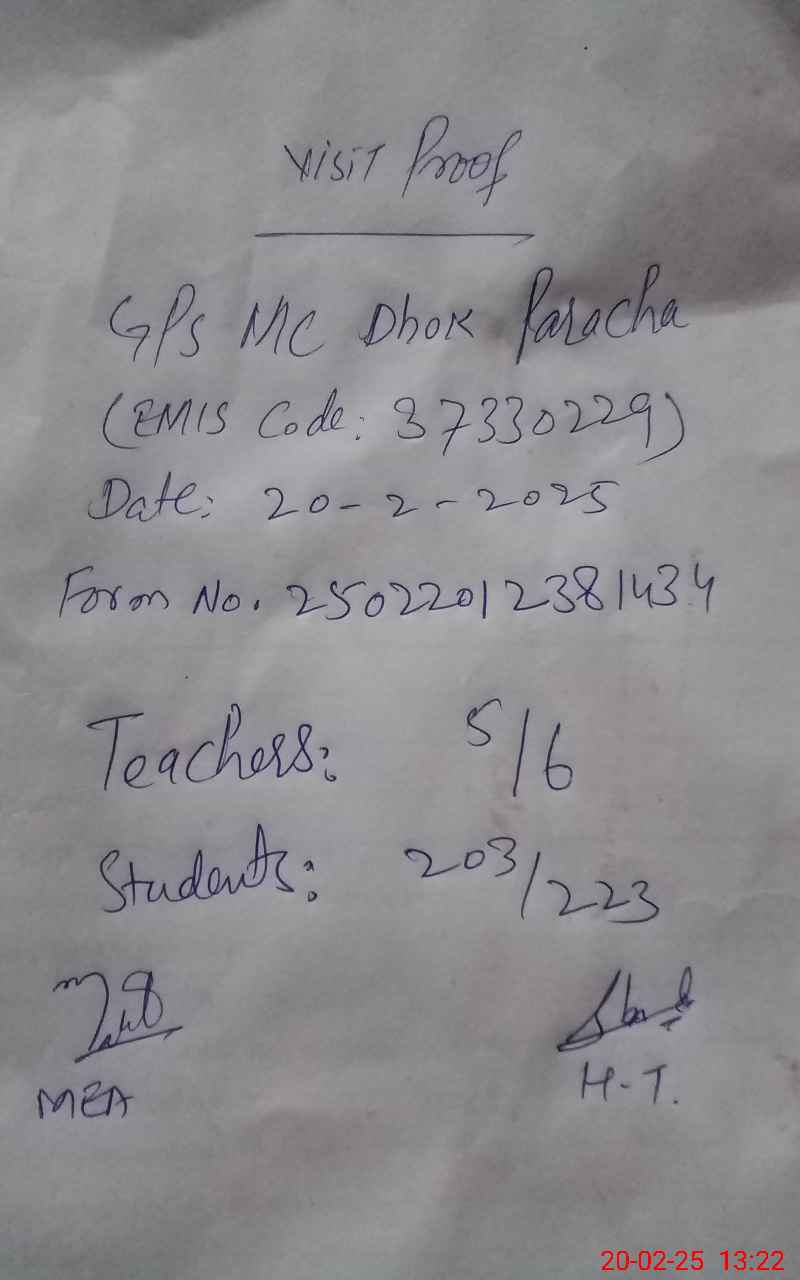 Visit Proof
GPS MC Dhok Paracha
(EMIS Code: 37330229)
Date: 20-2-2025
Form No. 25022012381434
Teachers: 5/6
Students: 203/223
MEA
H-T.
20-02-25 13:22